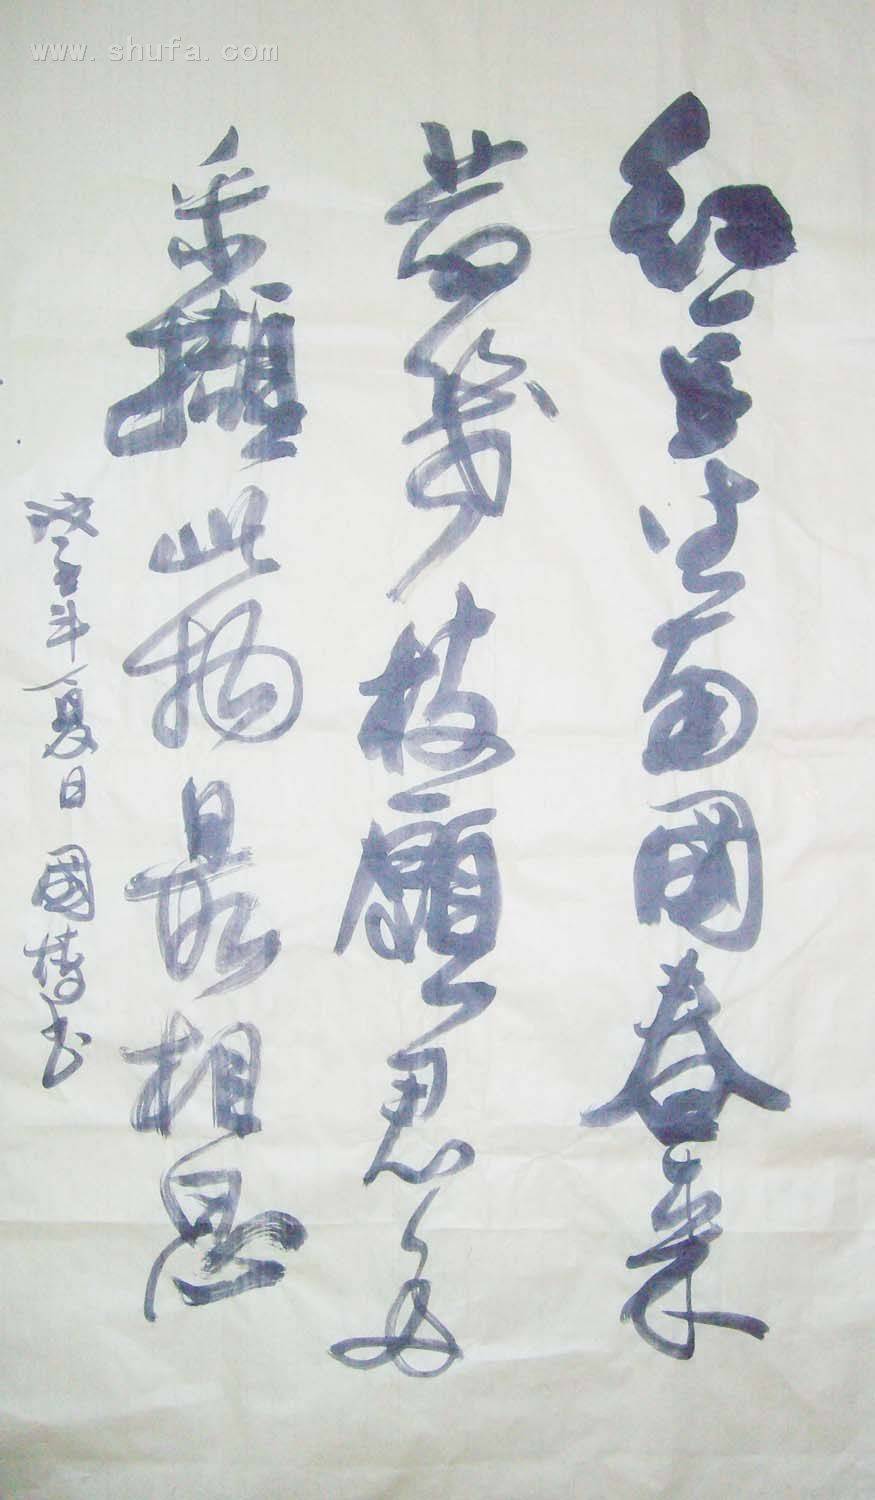 www.shufa.com
红豆生南國春来
發幾枝願君多
采擷此物最相思
癸巳年夏日國书